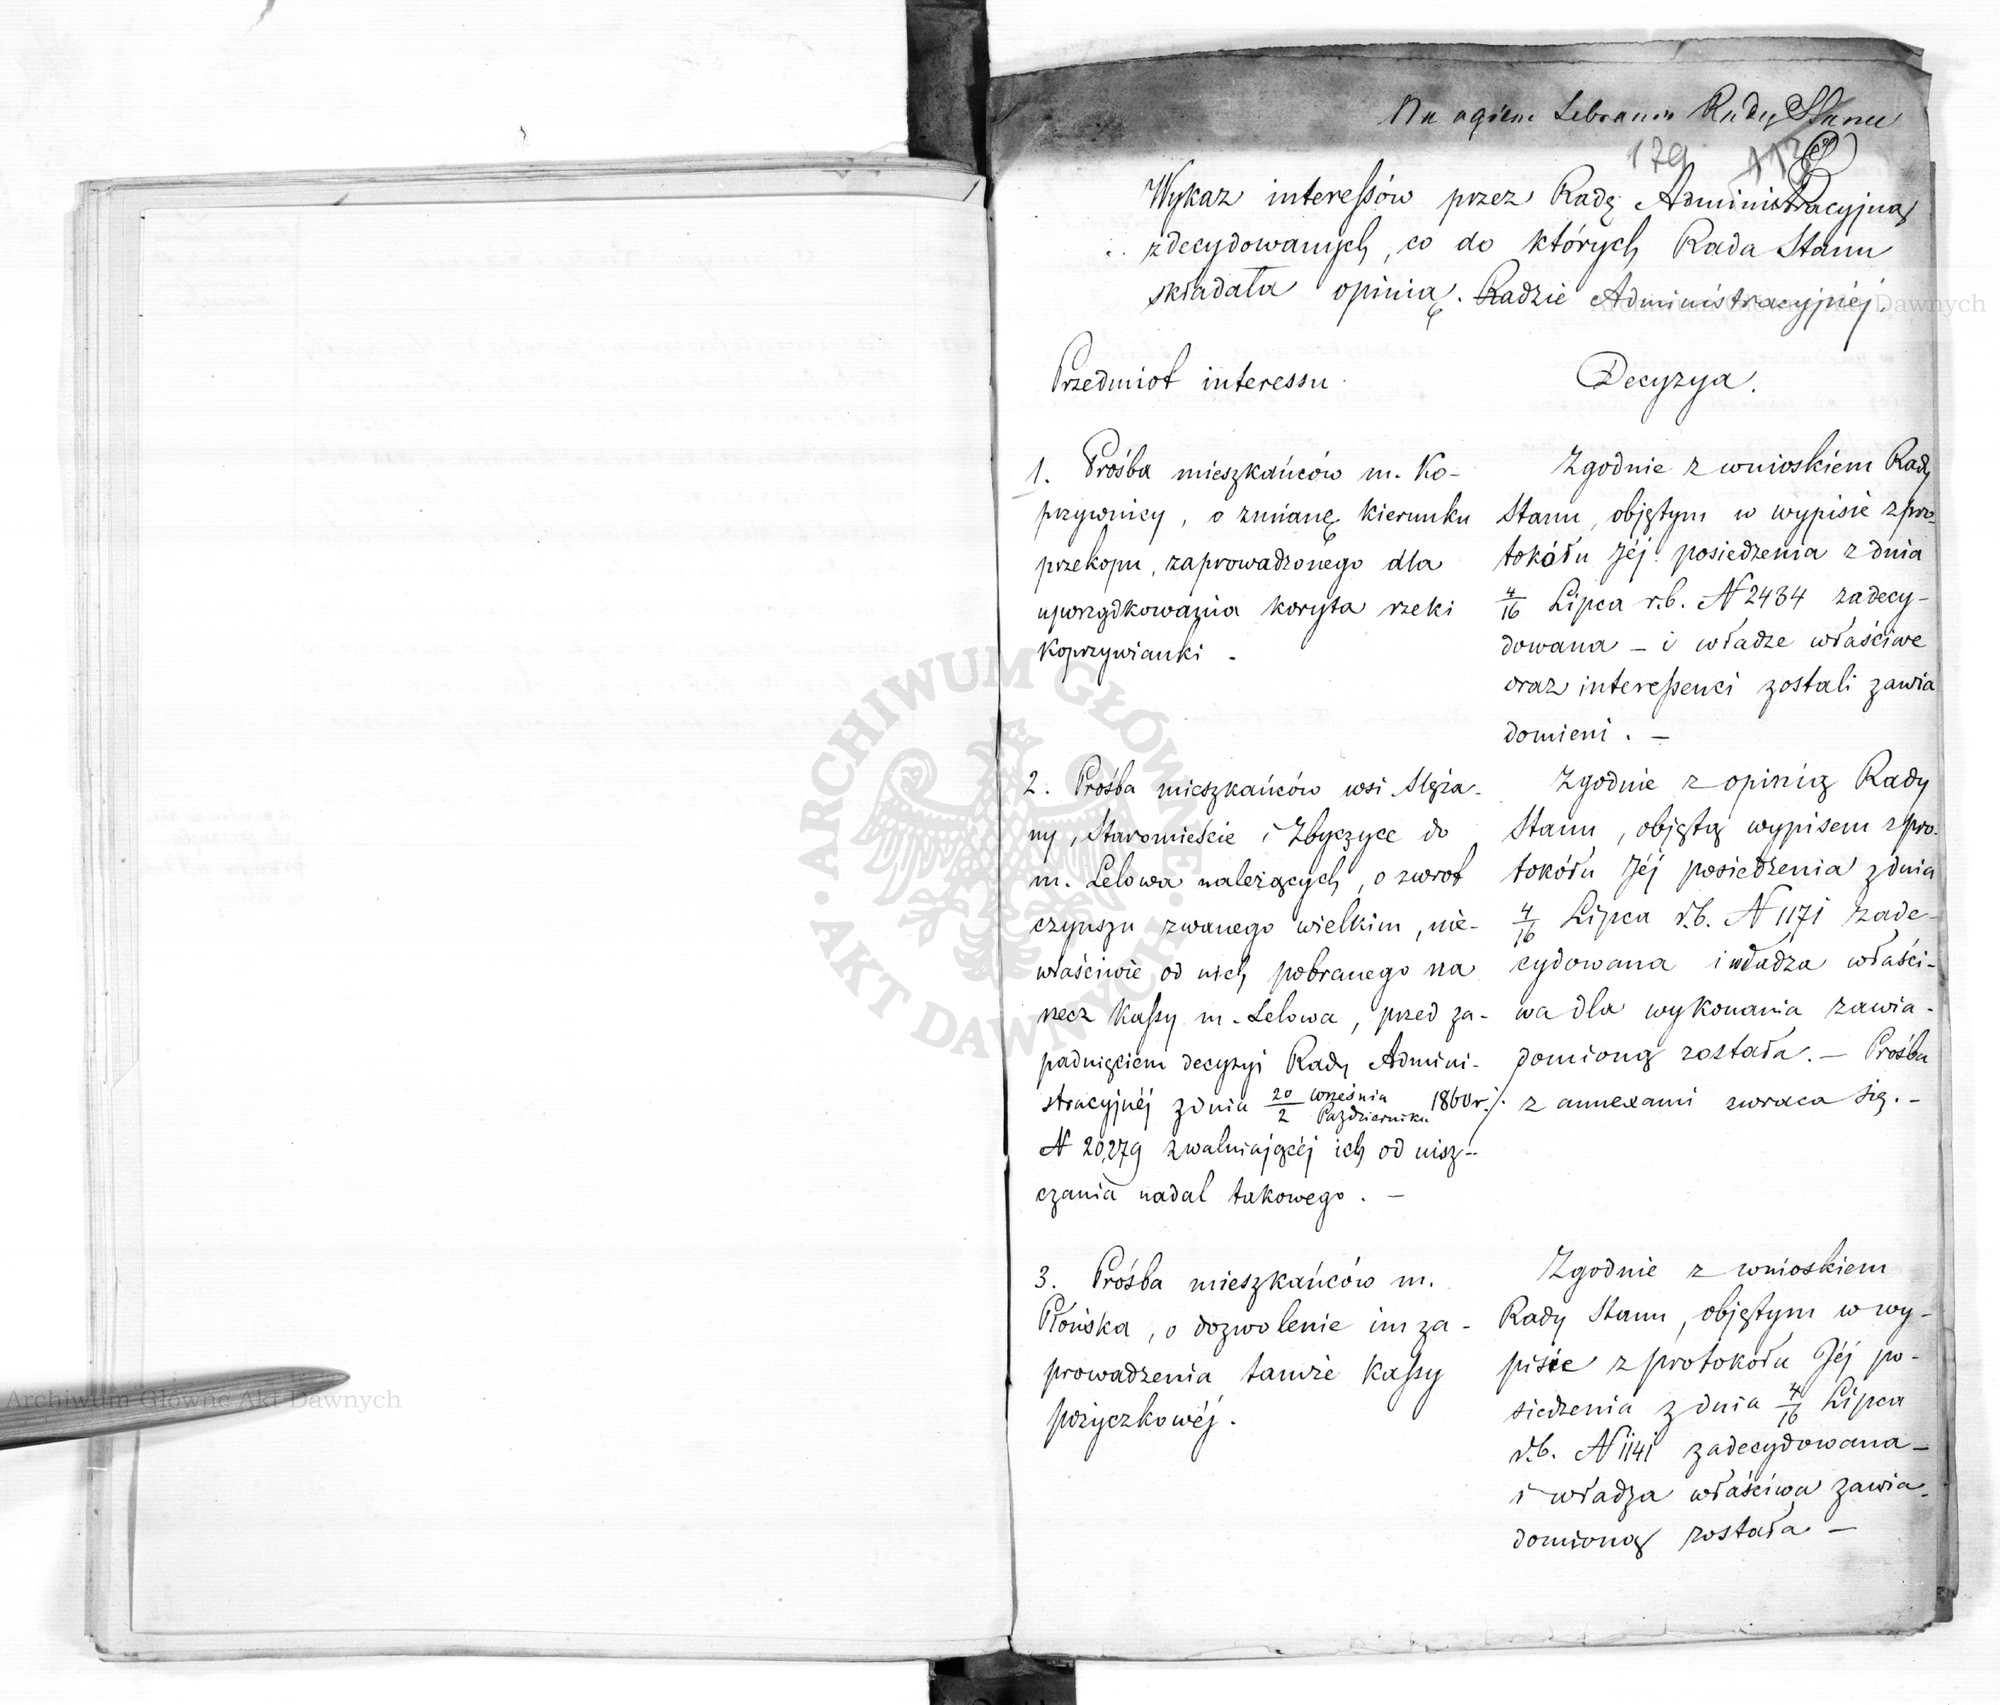 Na ogólnem Zebraniu Rady Stanu
179 113
Wykaz interessów przez Radę Administracyjną
zdecydowanych, co do których Rada Stanu
składała opinią Radzie Administracyjnéj.
Przedmiot interessu.
Decyzya.
1. Prośba mieszkańców m. Ko-
przywnicy, o zmianę kierunku
przekopu, zaprowadzonego dla
uporządkowania koryta rzeki
Koprzywianki.
Zgodnie z wnioskiem Rady
Stanu, objętym w wypisie z pro-
tokółu Jéj posiedzenia z dnia
4/16 Lipca r.b. N 2434 zadecy-
dowana – i władze właściwe
oraz interessenci zostali zawia
domieni. –
2. Prośba mieszkańców wsi Slęza-
ny, Staromieście i Zbyczyce do
m. Lelowa należących, o zwrot
czynszu zwanego wielkim, nie-
właściwie od nich pobranego na
rzecz Kassy m. Lelowa, przed za-
padnięciem decyzyi Rady Admini-
stracyjnéj z dnia 20 Września/2 Października 1860 r.
N 20,279 zwalniającéj ich od uisz-
czania nadal takowego. –
Zgodnie z opinią Rady
Stanu, objętą wypisem z pro-
tokółu Jéj posiedzenia z dnia
4/16 Lipca r.b. N 1171 zade-
cydowana i władza właści-
wa dla wykonania zawia-
domioną została. – Prośba
z annexami zwraca się. –
3. Prośba mieszkańców m.
Płońska, o dozwolenie im za-
prowadzenia tamże Kassy
pożyczkowéj.
Zgodnie z wnioskiem
Rady Stanu, objętym w wy-
pisie z protokołu Jéj po-
siedzenia z dnia 4/16 Lipca
r.b. N 1141 zadecydowana –
i władza właściwa zawia-
domioną została –
Archiwum Główne Akt Dawnych
ARCHIWUM GŁÓWNE AKT DAWNYCH
Archiwum Główne Akt Dawnych